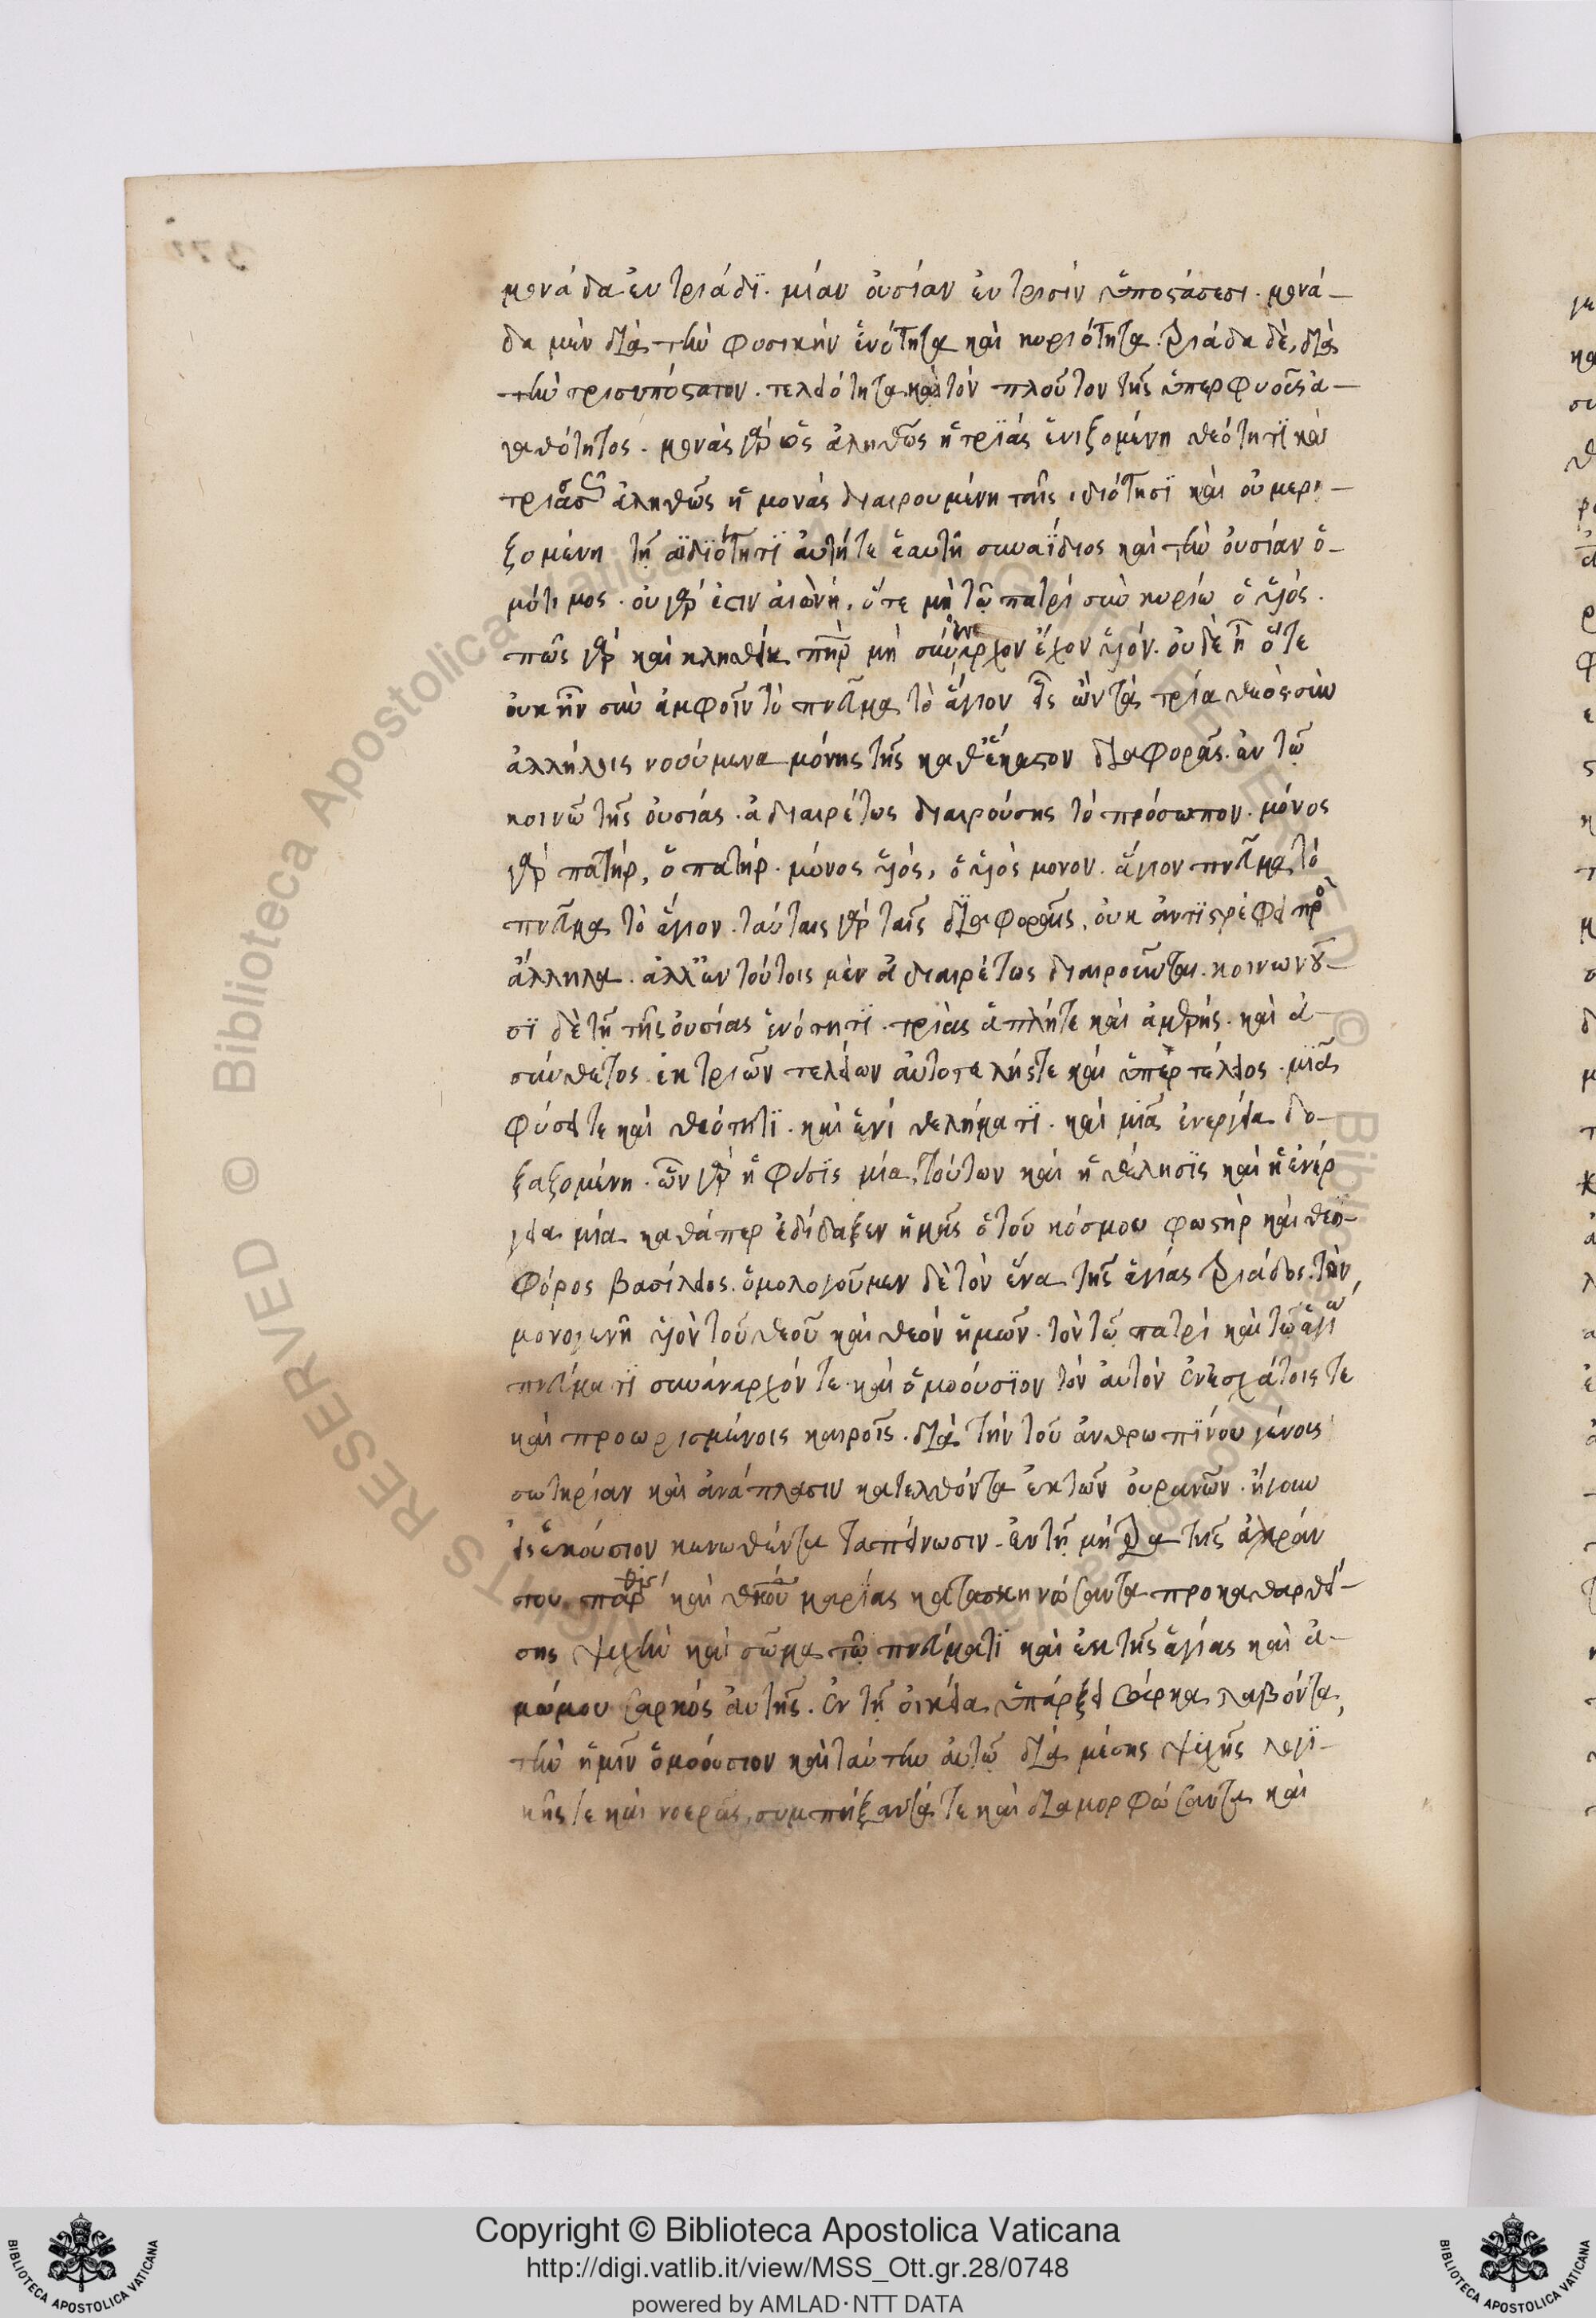 μονάδα ἐν τριάδϊ. μίαν οὐσίαν ἐν τρισὶν ὑποστάσεσι. μονά-
δα μὲν διὰ τὴν φυσικὴν ἑνότητα καὶ κυριότητα. τριάδα δὲ, διὰ
τὴν τρισυπόστατον. τελειότητα καὶ τὸν πλοῦτον τῆς ὑπερφυοῦς ἀ-
γαθότητος. μονὰς γὰρ ὡς ἀληθῶς ἡ τρϊὰς ἑνιζομένη θεότητϊ καὶ
τριὰς ἀληθῶς ἡ μονὰς διαιρουμένη ταῖς ἰδιότησϊ καὶ οὐ μερι-
ζομένη τῇ αϊδϊότητϊ αὐτή τε ἑαυτῇ συναΐδιος καὶ τὴν οὐσίαν ὁ-
μότιμος. οὐ γὰρ ἐστιν αἰὼν ἢ, ὅτε μὴ τῷ πατρὶ συνῆν κυρίω ὁ υἱός.
πῶς γὰρ καὶ κληθείη πὴρ μὴ συνάναρχον ἔχον υἱόν. οὐδὲ ἦ ὅτε
οὐκ ἦν σὺν ἀμφοῖν τὸ πνεῦμα τὸ ἅγιον εἷς ὢν τὰ τρία θεὸς σὺν
ἀλλήλοις νοούμενα μόνης τῆς καθέκαστον διαφορᾶς. ἐν τῷ
κοινῷ τῆς οὐσίας. ἀδιαιρέτως διαιρούσης τὸ πρόσωπον. μόνος
γὰρ πατήρ, ὁ πατήρ. μόνος υἱός, ὁ υἱὸς μονον. ἅγιον πνεῦμα τὸ
πνεῦμα τὸ ἅγιον. ταύταις γὰρ ταῖς διαφοραῖς, οὐκ ἀντϊστρέφει πρὸς
ἄλληλα. ἀλλ' ἐν τούτοις μὲν ἀδιαιρέτως διαιροῦνται. κοινωνοῦ-
σϊ δὲ τῇ τῆς οὐσίας ἑνότητϊ. τριὰς ἁπλή τε καὶ ἀμερής. καὶ ἀ-
σύνθετος ἐκ τριῶν τελείων αὐτοτελής τε καὶ ὑπὲρ τέλειος. μϊᾶ
φύσει τε καὶ θεότητϊ. καὶ ἑνὶ θελήματϊ. καὶ μϊᾶ ἐνεργεία δο-
ξαζομένη. ὧν γὰρ ἡ φύσϊς μία, τούτων καὶ ἡ θέλησϊς καὶ ἡ ἐνέρ
γεια μία καθάπερ ἐδίδαξεν ἡμᾶς ὁ τοῦ κόσμου φωστὴρ καὶ θεο-
φόρος βασίλειος. ὁμολογοῦμεν δὲ τὸν ἕνα τῆς ἁγίας τριάδος. τὸν
μονογενῆ υἱὸν τοῦ θεοῦ καὶ θεὸν ἡμῶν. τὸν τῷ πατρὶ καὶ τῷ ἁγίω
πνεύματϊ συνάναρχόν τε καὶ ὁμοούσϊον τὸν αὐτὸν ἐν ἐσχάτοις τε
καὶ προωρισμένοις καιροῖς. διὰ τὴν τοῦ ἀνθρωπϊνου γένους
σωτηρίαν καὶ ἀνάπλασιν κατελθόντα ἐκ τῶν οὐρανῶν. ἤγουν
εἰς ἑκούσιον κενωθέντα ταπείνωσιν. ἐν τῇ μήτρα τῆς ἀχράν
του παρθς καὶ θκου μαρίας κατασκηνώσαντα προκαθαρθεί-
σης ψυχὴν καὶ σῶμα τῷ πνεύματϊ καὶ ἐκ τῆς ἁγίας καὶ ἀ-
μώμου σαρκὸς αὐτῆς. ἐν τῇ οἰκεία ὑπάρξει σάρκα λαβόντα,
τὴν ἡμῖν ὁμοούσιον καὶ ταύτην αὐτῷ διὰ μέσης ψυχῆς λογϊ-
κῆς τε καὶ νοερᾶς, συμπήξαντά τε καὶ διαμορφώσαντα καὶ
Copyright © Biblioteca Apostolica Vaticana
http://digi.vatlib.it/view/MSS_Ott.gr.28/0748
powered by AMLAD·NTT DATA